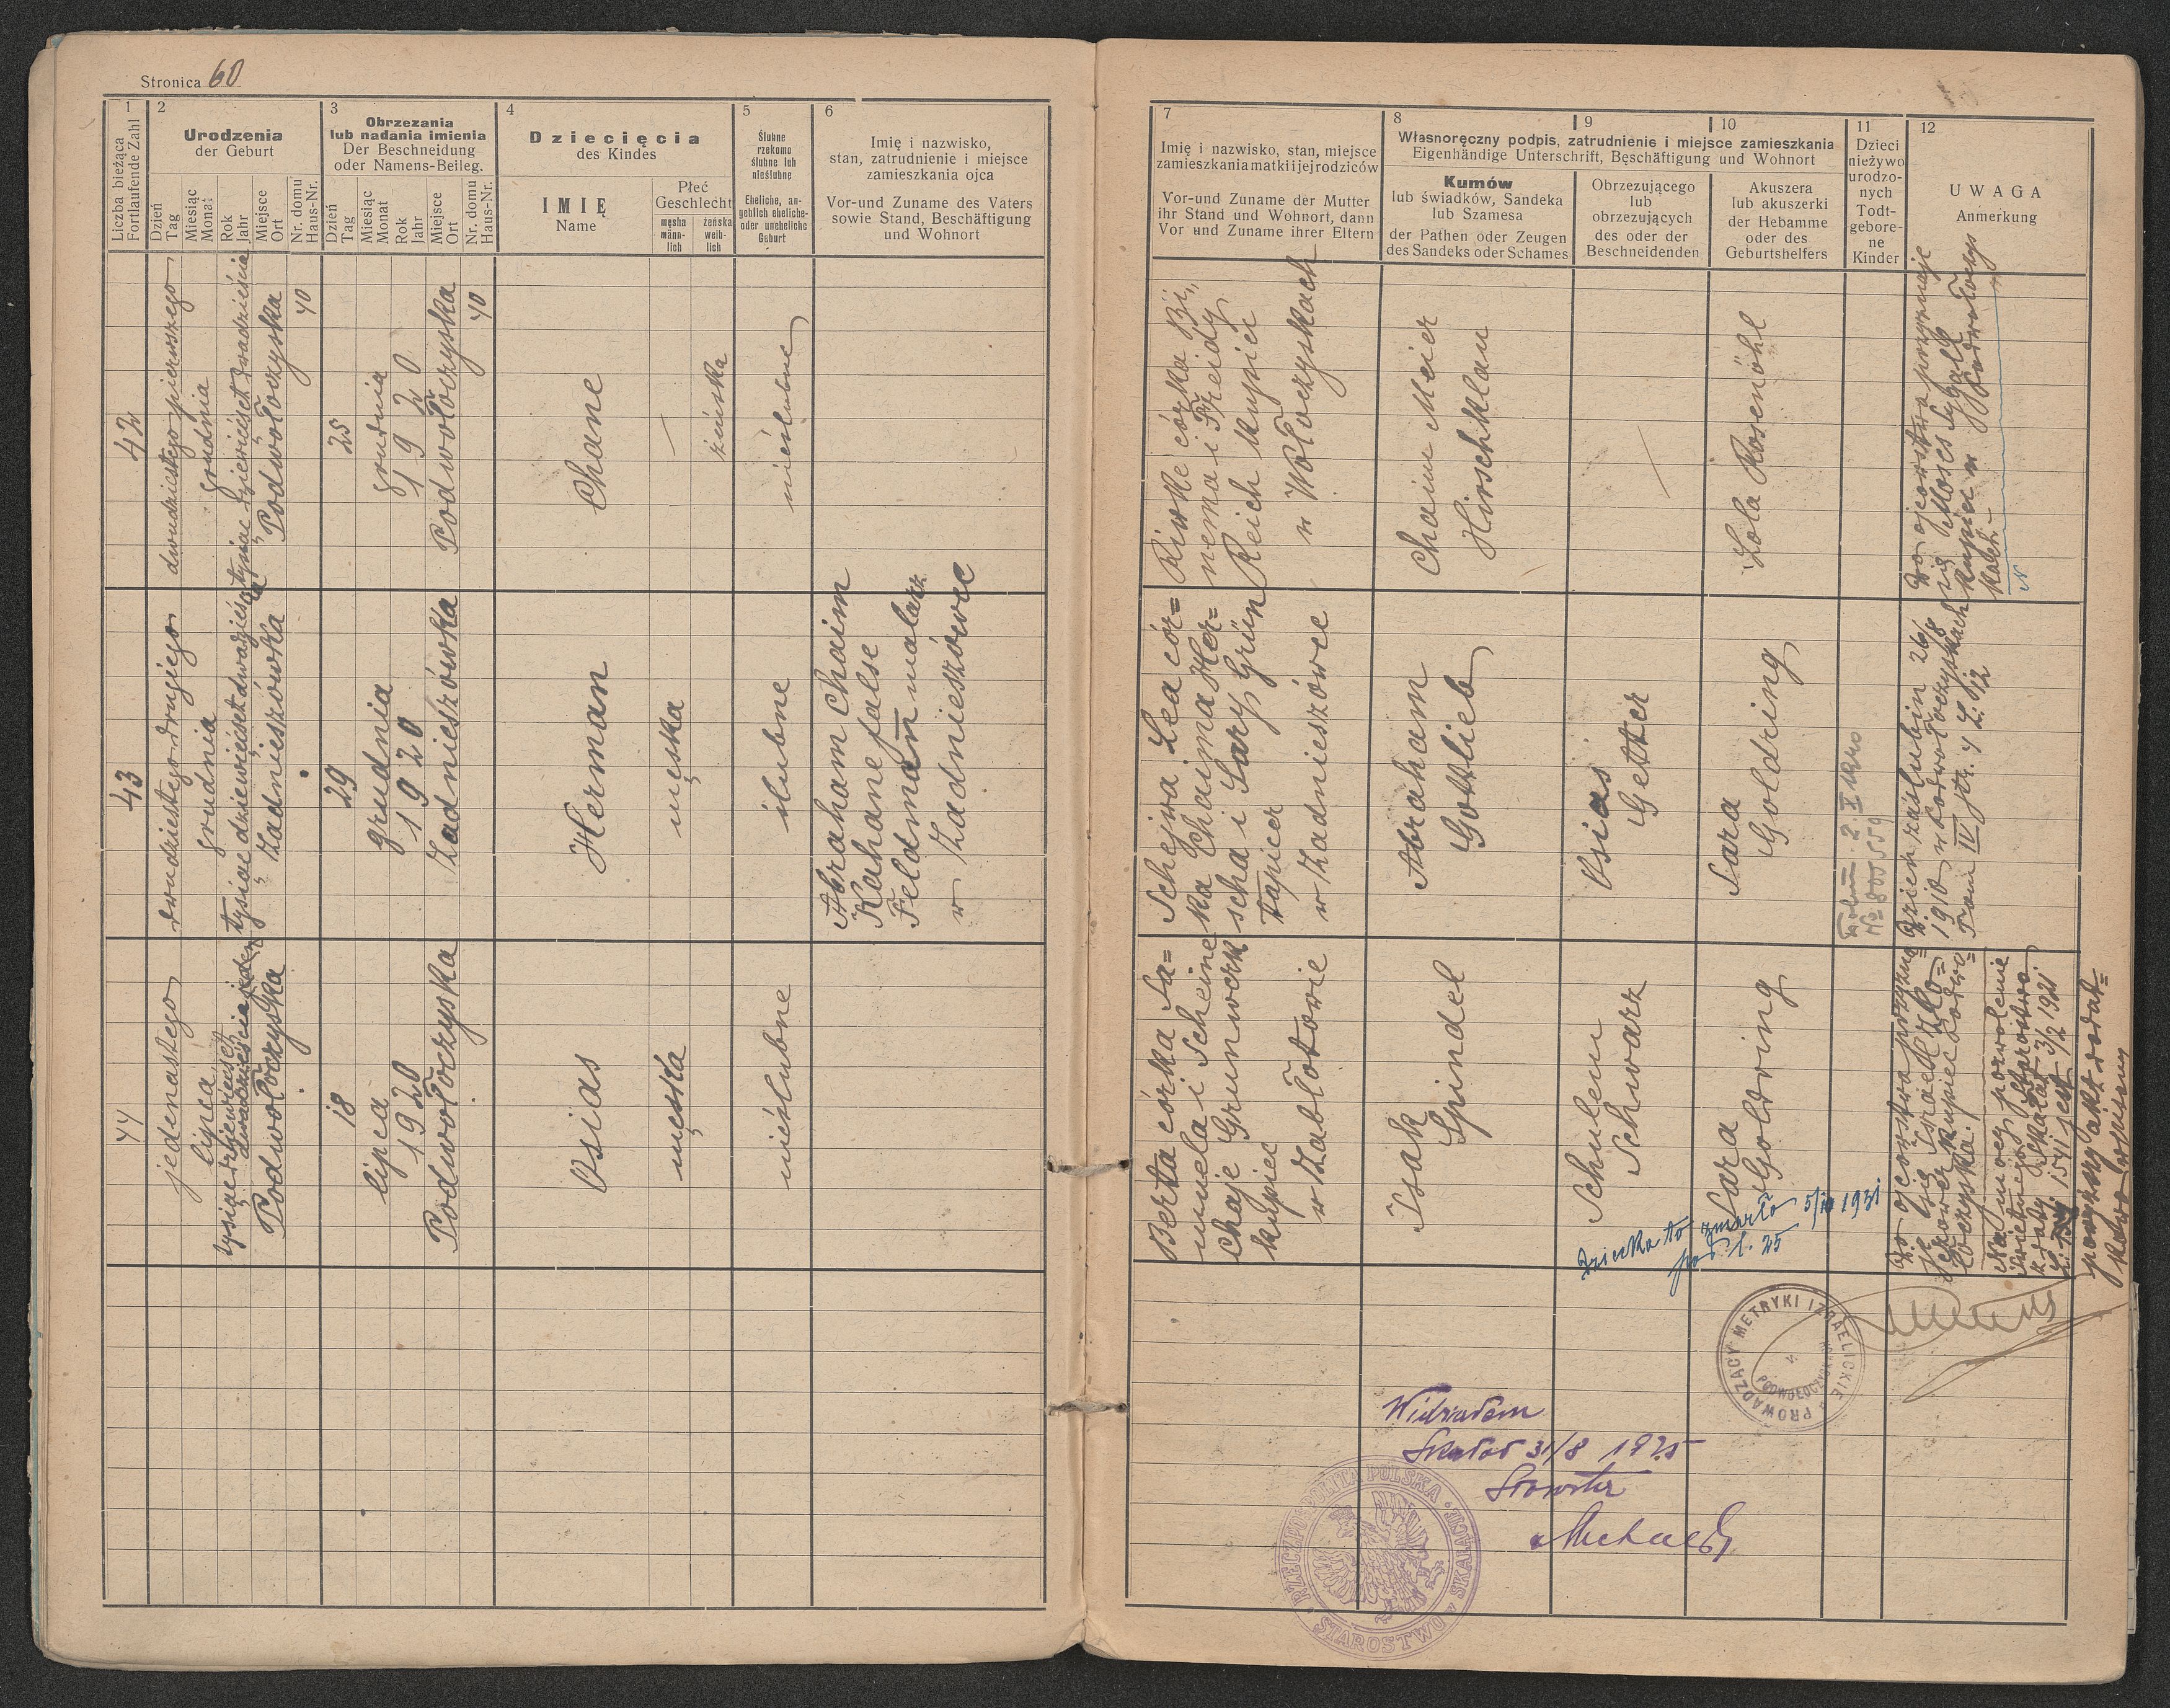 Stronica 60
1
Liczba bieżąca
Fortlaufende Zahl
2
Urodzenia
der Geburt
Dzień
Tag
Miesiąc
Monat
Rok
Jahr
Miejsce
Ort
Nr. domu
Haus-Nr.
3
Obrzezania
lub nadania imienia
Der Beschneidung
oder Namens-Beileg.
Dzień
Tag
Miesiąc
Monat
Rok
Jahr
Miejsce
Ort
Nr. domu
Haus-Nr.
4
Dziecięcia
des Kindes
IMIĘ
Name
Płeć
Geschlecht
męska
männ-
lich
żeńska
weib-
lich
5
Ślubne
rzekomo
ślubne lub
nieślubne
Eheliche, an-
geblich eheliche-
oder uneheliche
Geburt
6
Imię i nazwisko,
stan, zatrudnienie i miejsce
zamieszkania ojca
Vor-und Zuname des Vaters
sowie Stand, Beschäftigung
und Wohnort
7
Imię i nazwisko, stan, miejsce
zamieszkania matki i jej rodziców
Vor-und Zuname der Mutter
ihr Stand und Wohnort, dann
Vor und Zuname ihrer Eltern
8
9
10
Własnoręczny podpis, zatrudnienie i miejsce zamieszkania
Eigenhändige Unterschrift, Beschäftigung und Wohnort
Kumów
lub świadków, Sandeka
lub Szamesa
der Pathen oder Zeugen
des Sandeks oder Schames
Obrzezującego
lub
obrzezujących
des oder der
Beschneidenden
Akuszera
lub akuszerki
der Hebamme
oder des
Geburtshelfers
11
Dzieci
nieżywo
urodzo-
nych
Todt-
gebore-
ne
Kinder
12
UWAGA
Anmerkung
42
dwudziestego pierwszego
grudnia
tysiąc dziewięćset dwadzieścia
Podwołoczyska
40
25
grudnia
1920
Podwołoczyska
40
Chane
—
żeńska
nieślubne
Riwke córka Bi,
nema i Freidy
Reich kupiec
w Wołoczyskach
Chaim Meier
Hirschklau
—
Lola Rosenöhl
Do ojcowstwa przyznaje
się Moses Sygall
kupiec w Podwołoczys
kach.—
43
dwudziestego drugiego
grudnia
tysiąc dziewięćset dwadzieścia
Zadnieszówka
29
grudnia
1920
Zadnieszówka
Herman
męska
ślubne
Abraham Chaim
Kahane false
Feldman malarz
w Zadnieszówce
Schejwa Lea cór=
ka Chaima Her=
scha i Sary Grün
tapicer
w Zadnieszówce
Abraham
Gottlieb
Osias
Getter
Sara
Goldring
Nº 805559
Dzień zaślubin 26/8
1910 w Podwołoczyskach
Tom IV str. 4 L. 12
44
jedenastego
lipca
tysiąc dziewięćset
dwadzieścia jeden
Podwołoczyska
18
lipca
1920
Podwołoczyska
Osias
męska
nieślubne
Berta córka Sa=
muela i Scheine
Chaje Grunwerk
kupiec
w Zabłotowie
Isak
Spindel
Schulem
Schwarz
Sara
Goldring
Do ojcostwa przyzna=
je się Isiel Zło=
kupiec Podwo=
łoczyska.
Na mocy pozwolenie
Starostwa
Skałat 3/2 1921
L. 1541 jest
powyższy akt dodat=
kowo wpisany
Dziecko to zmarło 5/ 1931
pod l. 25
PROWADZĄCY METRYKI IZRAELICKIE
PODWOŁOCZYSKACH
Widziałem
Skałat 31/8 1925
Starosta
RZECZPOSPOLITA POLSKA
STAROSTWO W SKALACIE